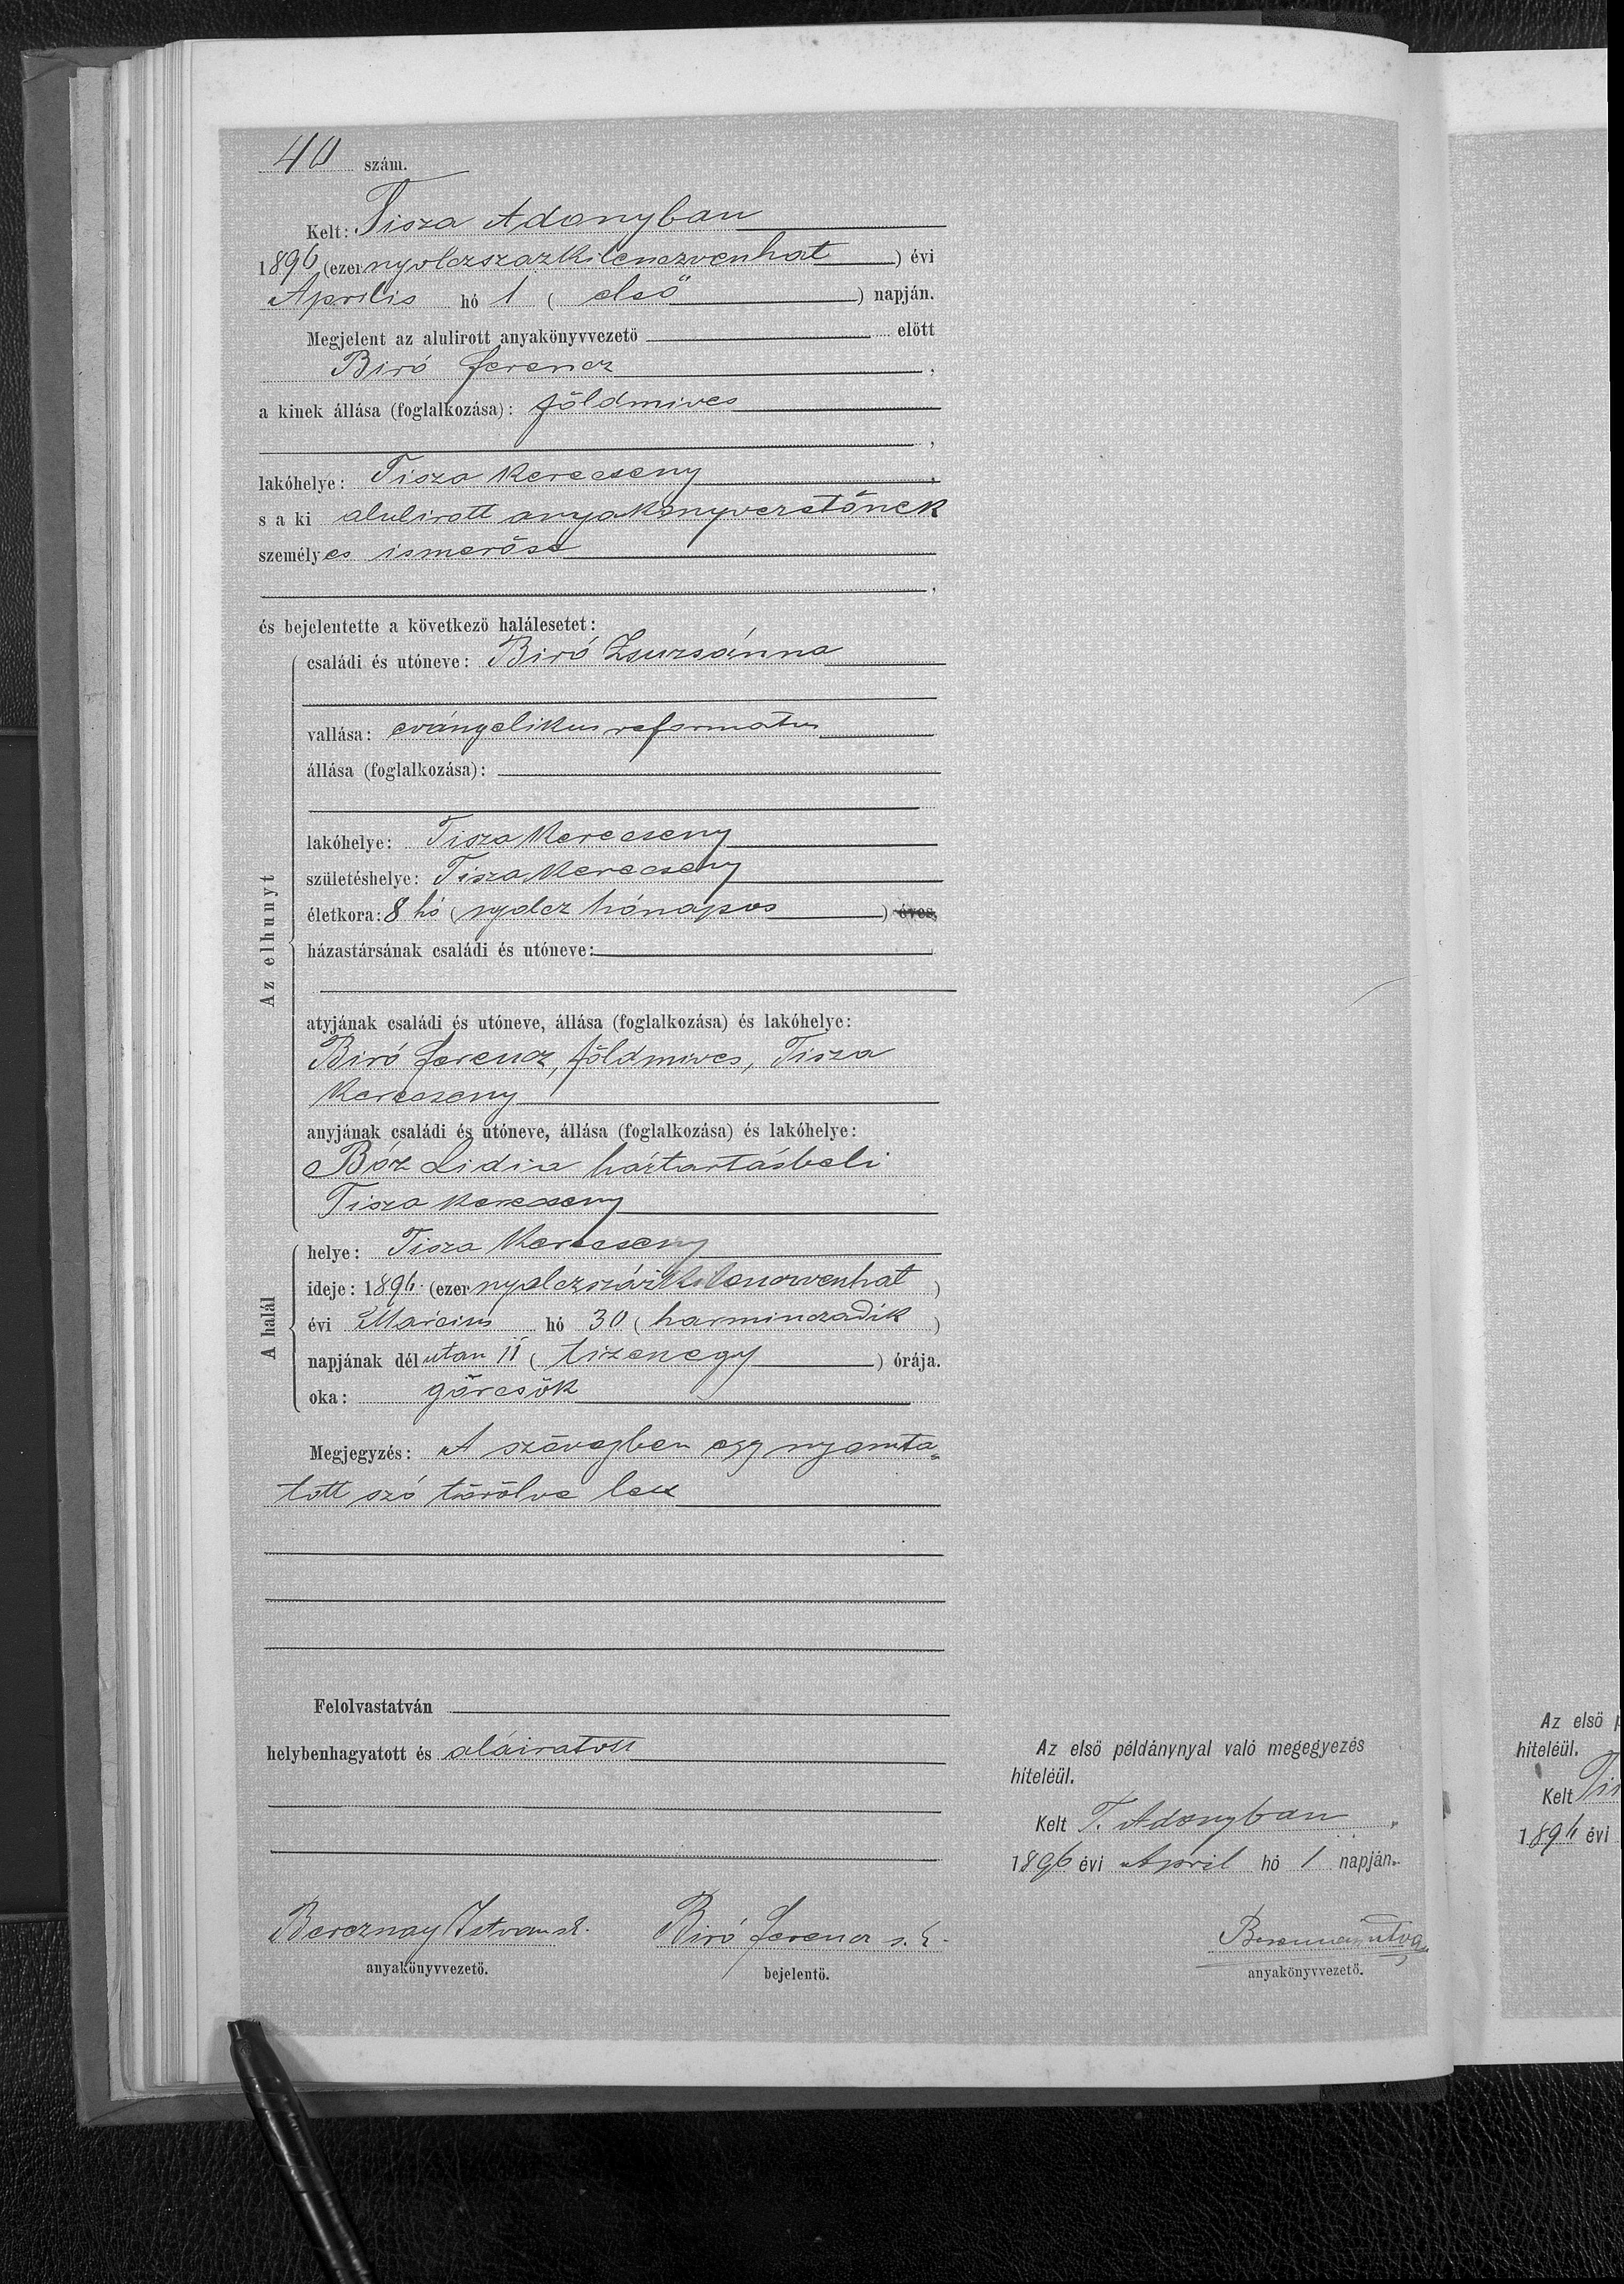 40 szám.
Kelt: Tisza Adonyban
1896 (ezernyolczszazkilenczvenhat) évi
Aprilis hó 1 ( első ) napján.
Megjelent az alulirott anyakönyvvezető előtt
Biró Ferencz ,
a kinek állása (foglalkozása): földmives
,
lakóhelye: Tisza Kerecseny ,
s a ki alulirott anyakönyvezetőnek
személyes ismerőse
,
és bejelentette a következő halálesetet:
Az elhunyt
családi és utóneve: Biró Zsuzsánna
vallása: evángelikus reformatus
állása (foglalkozása):
lakóhelye: Tisza Kerecseny
születéshelye: Tisza Kerecseny
életkora: 8 hó ( nyolcz hónapos ) éves,
házastársának családi és utóneve:
atyjának családi és utóneve, állása (foglalkozása) és lakóhelye:
Biró Ferencz, földmives, Tisza
Kerecseny
anyjának családi és utóneve, állása (foglalkozása) és lakóhelye:
Bóz Lidia háztartásbeli
Tisza Kerecseny
A halál
helye: Tisza Kerecseny
ideje: 1896 (ezernyolczszázkilenczvenhat )
évi Március hó 30 ( harminczadik )
napjának délutan 11 ( tizenegy ) órája.
oka: görcsök
Megjegyzés: A szövegben egy nyomta-
tott szó törölve lett
Felolvastatván
helybenhagyatott és aláiratott
Az első példánynyal való megegyezés
hiteléül.
Kelt T. Adonyban
1896 évi April hó 1 napján.
Bereznay Istvan sk. Biró Ferencz s. k.
anyakönyvvezető. bejelentő.
anyakönyvvezető.
Az első
hiteléül.
Kelt
1896 évi